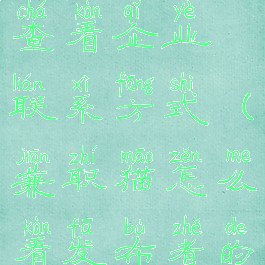 chá kàn qǐ yè
查看企业
lián xì fāng shì
联系方式（
jiān zhí māo zěn me
兼职猫怎么
kàn fā bù zhě de
看发布者的